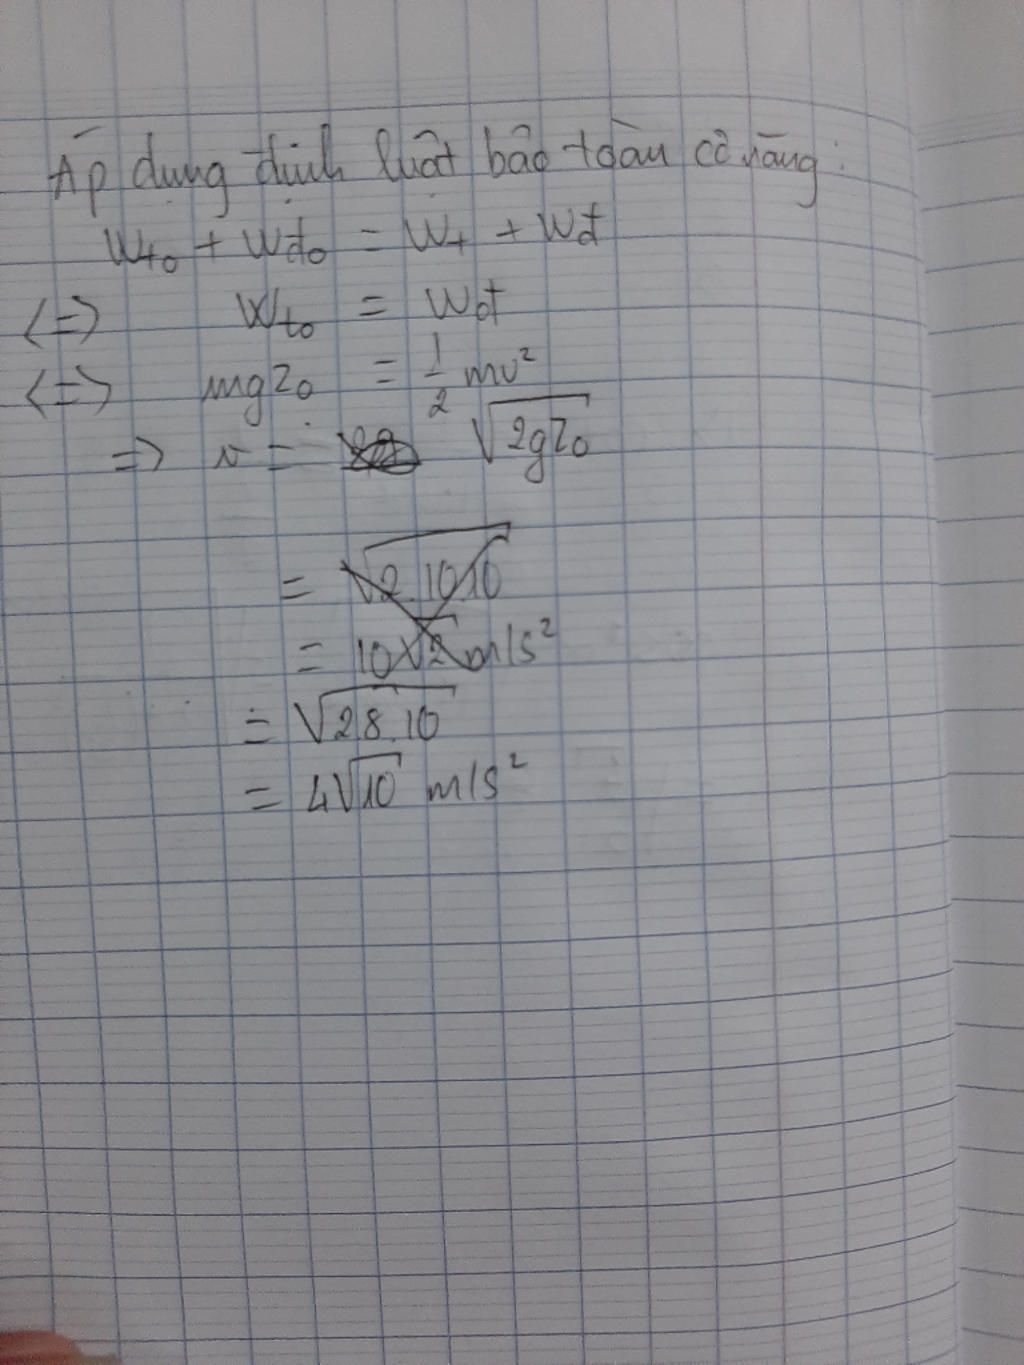 Áp dụng định luật bảo toàn cơ năng:
Wt₀ + Wđ₀ = Wt + Wđ
<=> Wt₀ = Wđ
<=> mgz₀ = 1/2 mv²
=> v = √(2gz₀)
= √(2.10.10)
= 10√2 m/s²
= √(2.8.10)
= 4√10 m/s²